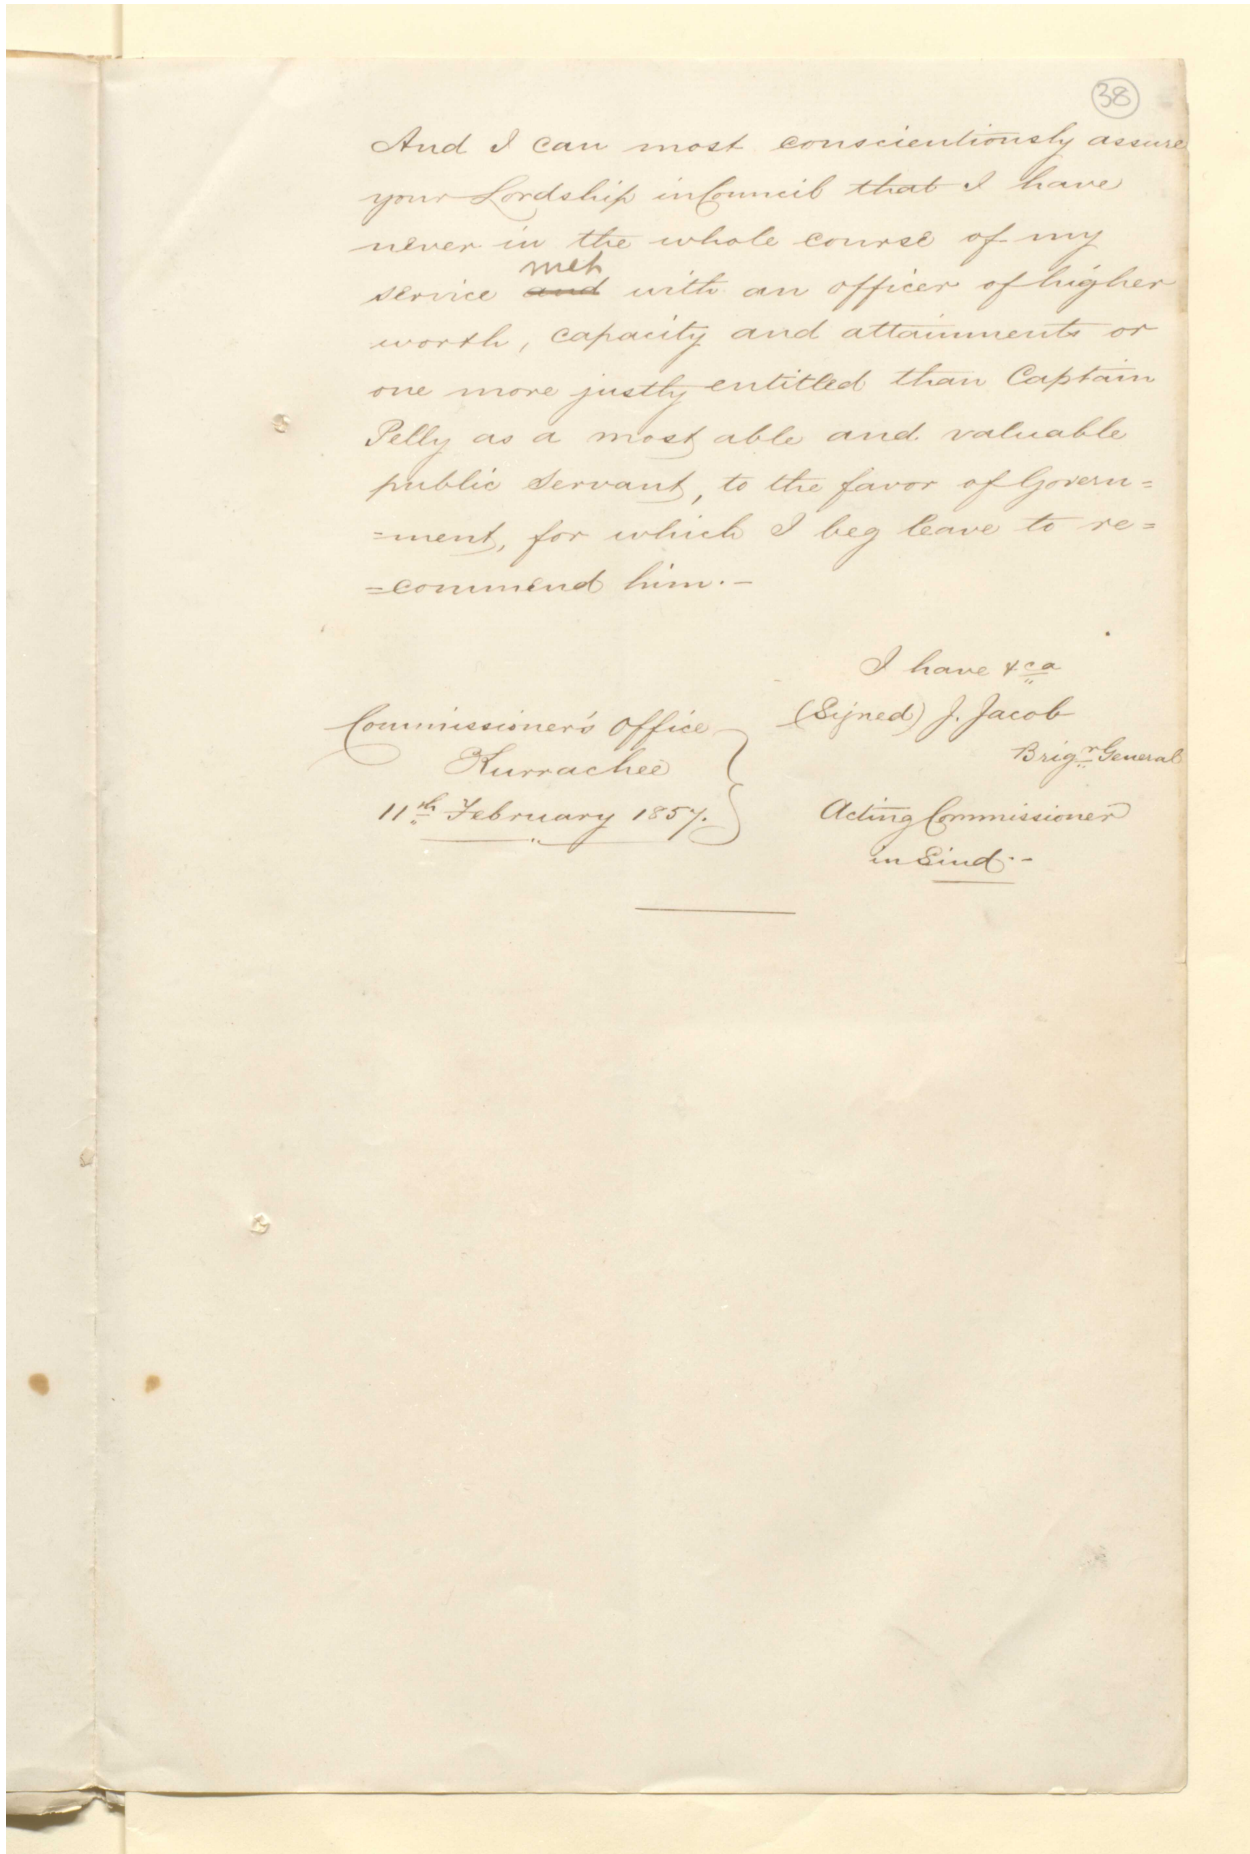 38
And I can most conscientiously assure
your Lordship in Council that I have
never in the whole course of my
met
service and with an officer of higher
worth, capacity and attainments or
one more justly entitled than Captain
Pelly as a most able and valuable
public servant, to the favor of Govern=
=ment, for which I beg leave to re=
=commend him. -
I have &ca
(Signed) J. Jacob
Brigr General
Acting Commissioner
in Sind. -
Commissioner's Office
Kurrachee
11th February 1857.